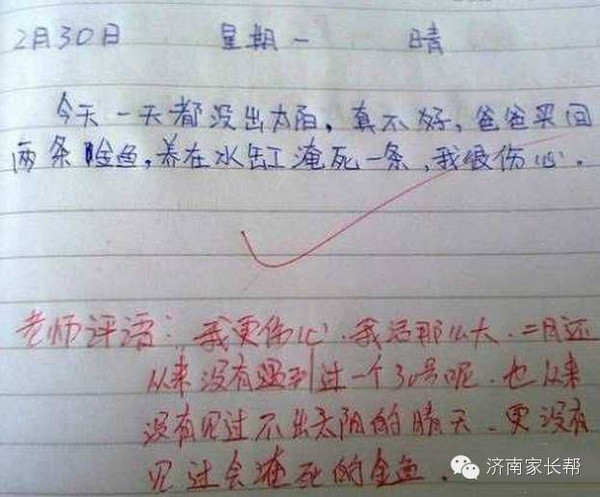 2月30日 星期一 晴
今天一天都没出太阳,真不好,爸爸买回
两条金鱼,养在水缸淹死一条,我很伤心。
老师评语:我更伤心.我活那么大.二月还
从来没有遇到过一个30号呢.也从来
没有见过不出太阳的晴天.更没有
见过会淹死的金鱼.
济南家长帮